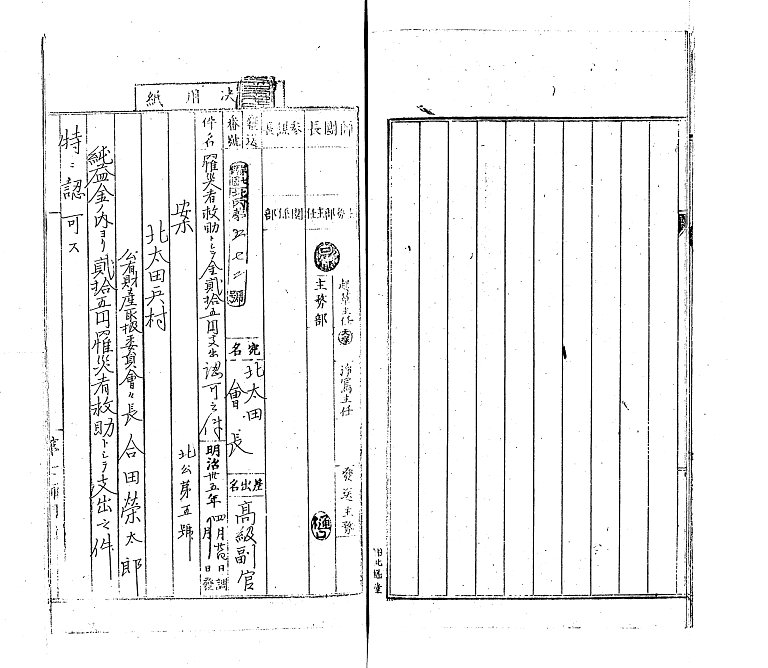 決用紙
師團長
參謀長
主務部主任
關係部
起草主任
淨寫主任
發送主務
主務部
發送番號
第七師團北丙第三七二號
宛名
北太田會長
差出名
高級副官
件名
罹災者救助トシテ金貳拾五円支出認可之件
明治卅五年
四月廿
日調
月
日發
北公第五號
案
北太田兵村
公有財産取扱委員會々長合田榮太郎
純益金ノ内ヨリ貳拾五円罹災者救助トシテ支出之件
特ニ認可ス